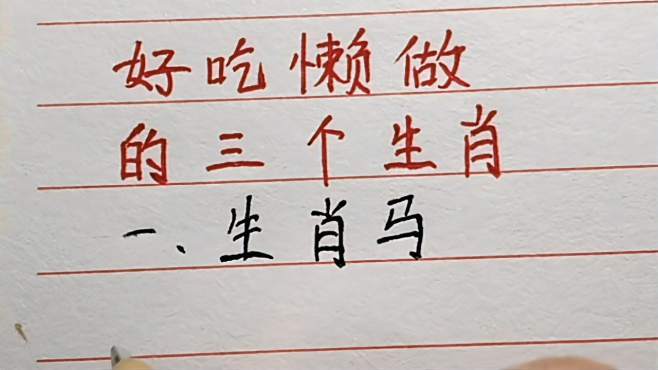 好吃懒做
的三个生肖
一、生肖马